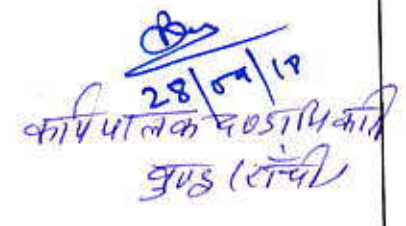 28/09/18
कार्यपालक दण्डाधिकारी
बुण्डू (राँची)